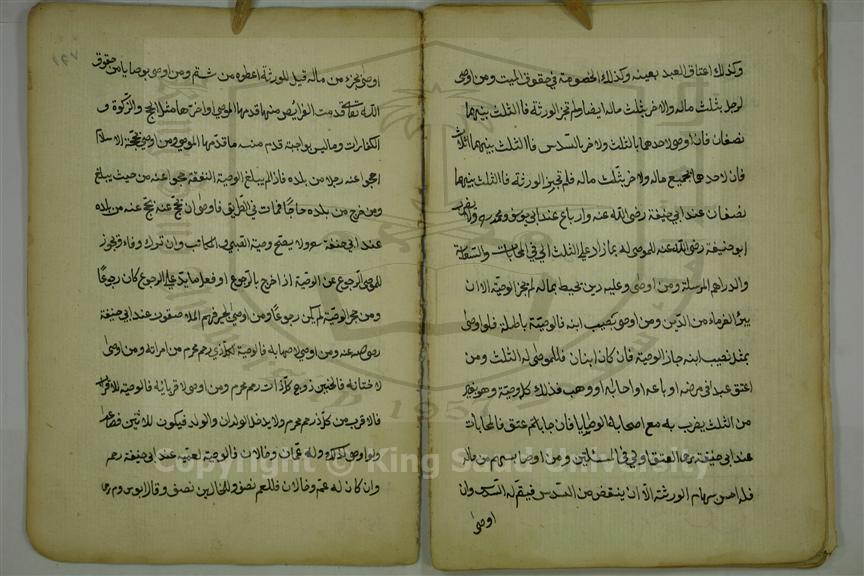 وكذلك اعتاق العبد بعينه وكذلك الخصومة في حقوق الميت ومن اوصى
لرجل بثلث ماله والاخر بثلث ماله ايضا ولم تجز الورثة فاالثلث بينهما
نصفان فان اوصى لاحدهما بالثلث ولاخر بالسدس فا الثلث بينهما اثلاث
فان لاحدهما بجميع ماله ولاخر بثلث ماله فلم تجيز الورثة فا الثلث بينهما
نصفان عند ابي حنيفة رضى الله عنه وارباع عند ابي يوسف ومحمد ولا يضرب
ابو حنيفة رضى الله عنه للموصى له بما زاد على الثلث الى في المحابات والسعاية
والدراهم المرسلة ومن اوصى وعليه دين يحيط بماله لم يجز الوصية الا ان
يبرا الغرماء من الدين ومن اوصى بنصيب ابنه فالوصية باطلة فلو اوصى
بمثل نصيب ابنه جاز الوصية فان كان ابنان فللموصى له الثلث ومن
اعتق عبدا في مرضه او باعه او احابا له او وهب فذلك كله وصية وهو يعتبر
من الثلث يضرب به مع اصحاب الوطايا فان جابا ثم عتق فالمحابات
عند ابي حنيفة العتق اولى في المسئلتين ومن اوصا بسهم من ماله
فله اخس سهام الورثة الا ان ينقض من السدس فيتم له السدس وان
اوصى
اوصى بجزء من ماله قيل للورثة اعطوه من شئتم ومن اوصى بوصايا من حقوق
الله تعالى قدمت الفرايض منها قدمها الموصى او اخرها مثل الحج والزكوة و
الكفارات وما ليس بواجبة قدم منه ما قدمها الموصى ومن اوصى بحجة الاسلام
احجوا عنه رجلا من بلده فاذا لم يبلغ الوصية النفقة حجوا عنه من حيث يبلغ
ومن خرج من بلده حاجا فمات في الطريق فاوصى ان يحج عنه يحج عنه من بلده
عند ابي حنيفة ولا يصح وصية الصبي والمكاتب وان ترك وفاء ويجوز
للموصى الرجوع عن الوصية اذ اخرج بالرجوع او فعل ما يدل على الرجوع كان رجوعا
ومن جحد الوصية لم يكن رجوعا ومن اوصى لجيرانه فهم الملاصقون عند ابي حنيفة
عنه ومن اوصى لاصهاره فالوصية لكل ذي رحم محرم من امراته ومن اوصى
لاختانه فالختن زوج كل ذات رحم محرم ومن اوصى لاقربائه فالوصية للاقرب
فالاقرب من كل ذي رحم محرم ولا يدخل الوالدان والولد فيكون للاثنين فصاعدا
ولو اوصى كذلك وله عمان وخالان فالوصية لعميه عند ابي حنيفة
وان كان له عم وخالان فللعم نصف وللخالين نصف وقالا